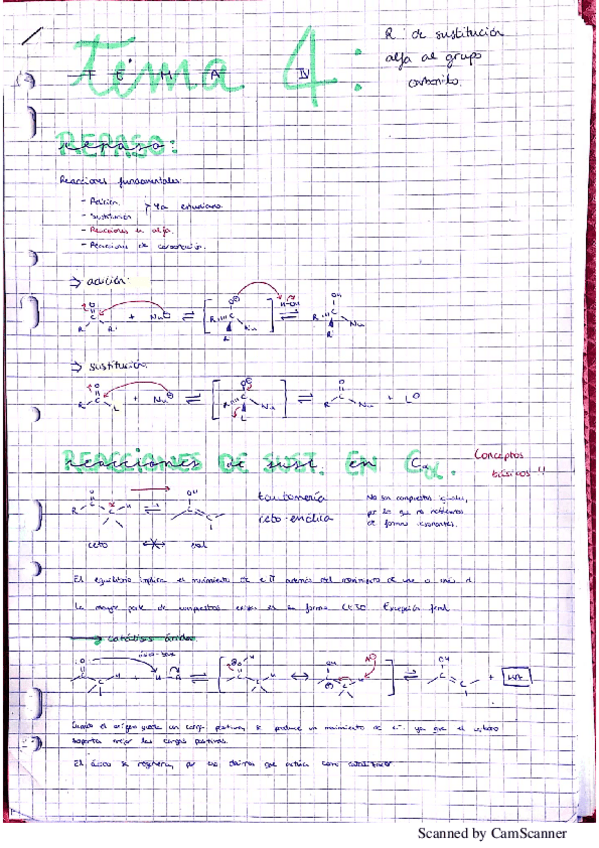 Tema 4:
T E M A IV
R: de sustitución
alfa al grupo
carbonilo.
REPASO:
Reacciones fundamentales:
- Adición.
- Sustitución
} Ya estudiado
- Reacciones en alfa.
- Reacciones de condensación.
→ adición
→ sustitución
REACCIONES DE SUST. EN Cα.
Conceptos
básicos!!
tautomería
ceto-enólica
No son compuestos iguales,
por lo que no
de formas resonantes.
ceto
enol
El equilibrio implica el movimiento de e⁻ π además del movimiento de uno o más
La mayor parte de compuestos en la forma CETO Excepción fenol
→ catálisis ácida
ácido-base
HA
Cuando el oxígeno queda con carga positiva, se produce un movimiento de e⁻ ya que el
soporta mejor las cargas positivas.
El ácido se regenera, por eso que actúa como catalizador
Scanned by CamScanner